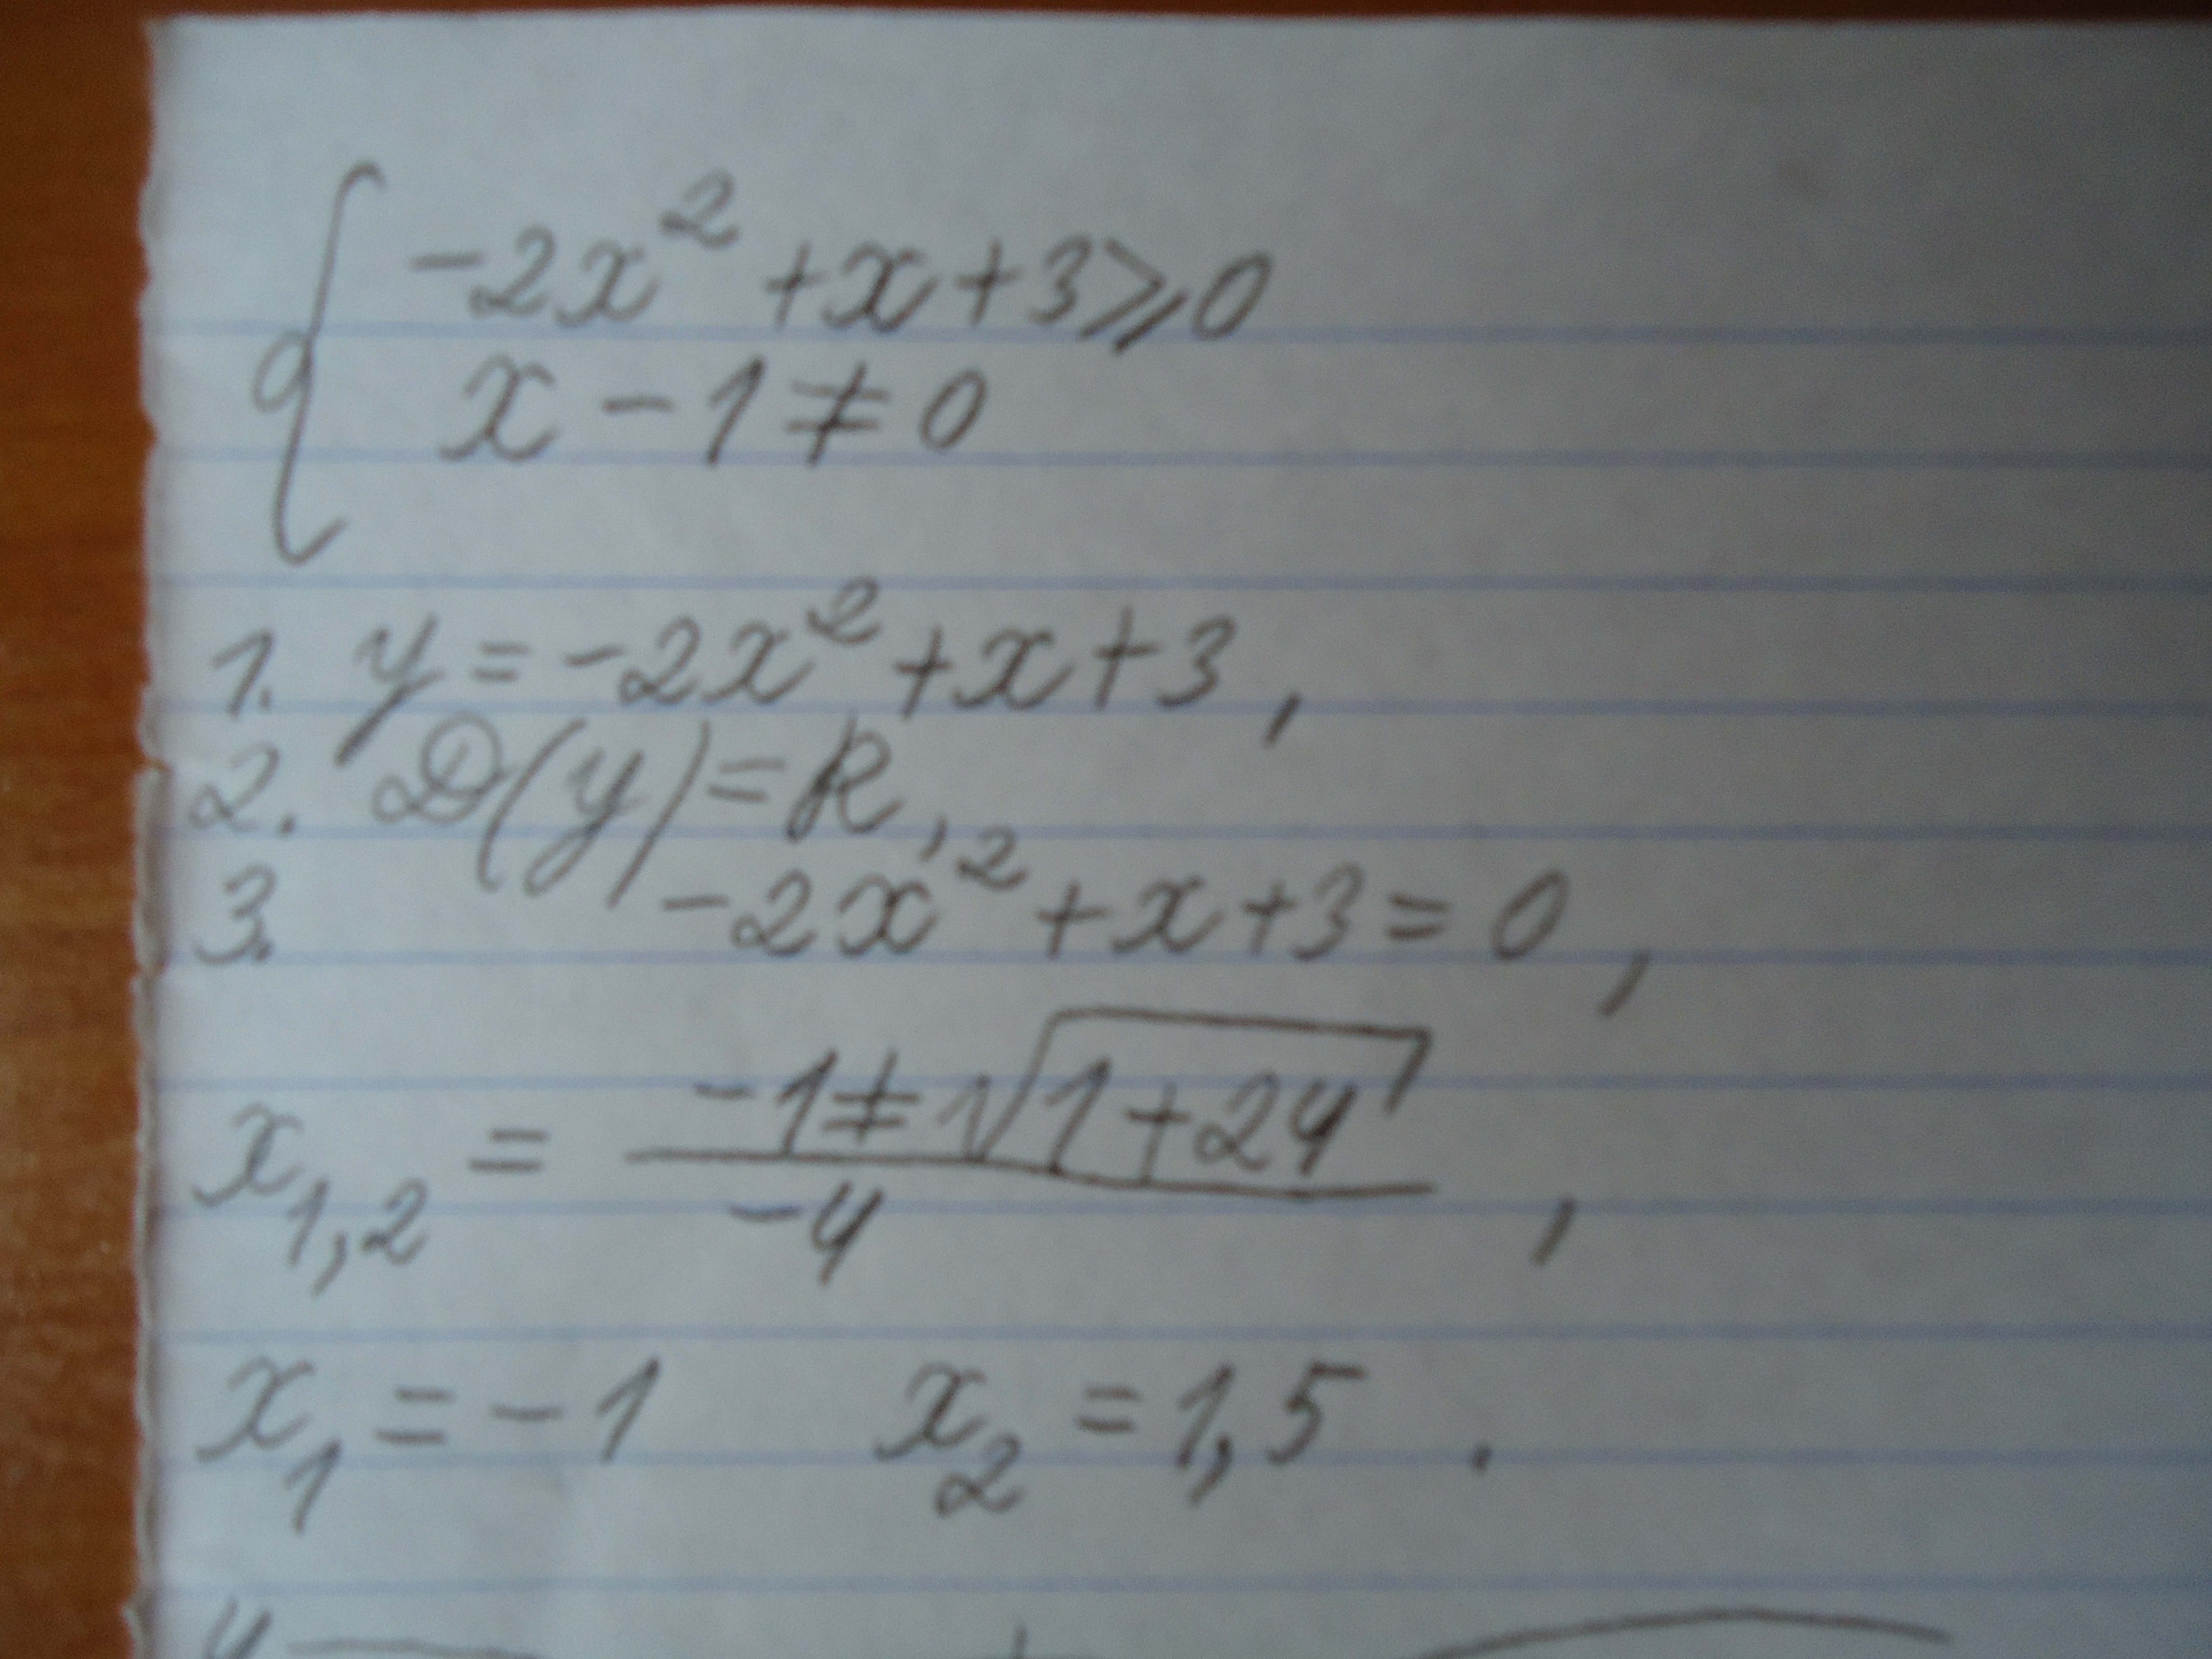 { -2x² + x + 3 ⩾ 0
x - 1 ≠ 0
1. y = -2x² + x + 3 ,
2. D(y) = R ,
3. -2x² + x + 3 = 0 ,
x₁,₂ = (-1 ≠ √(1+24)) / -4 ,
x₁ = -1 x₂ = 1,5 .